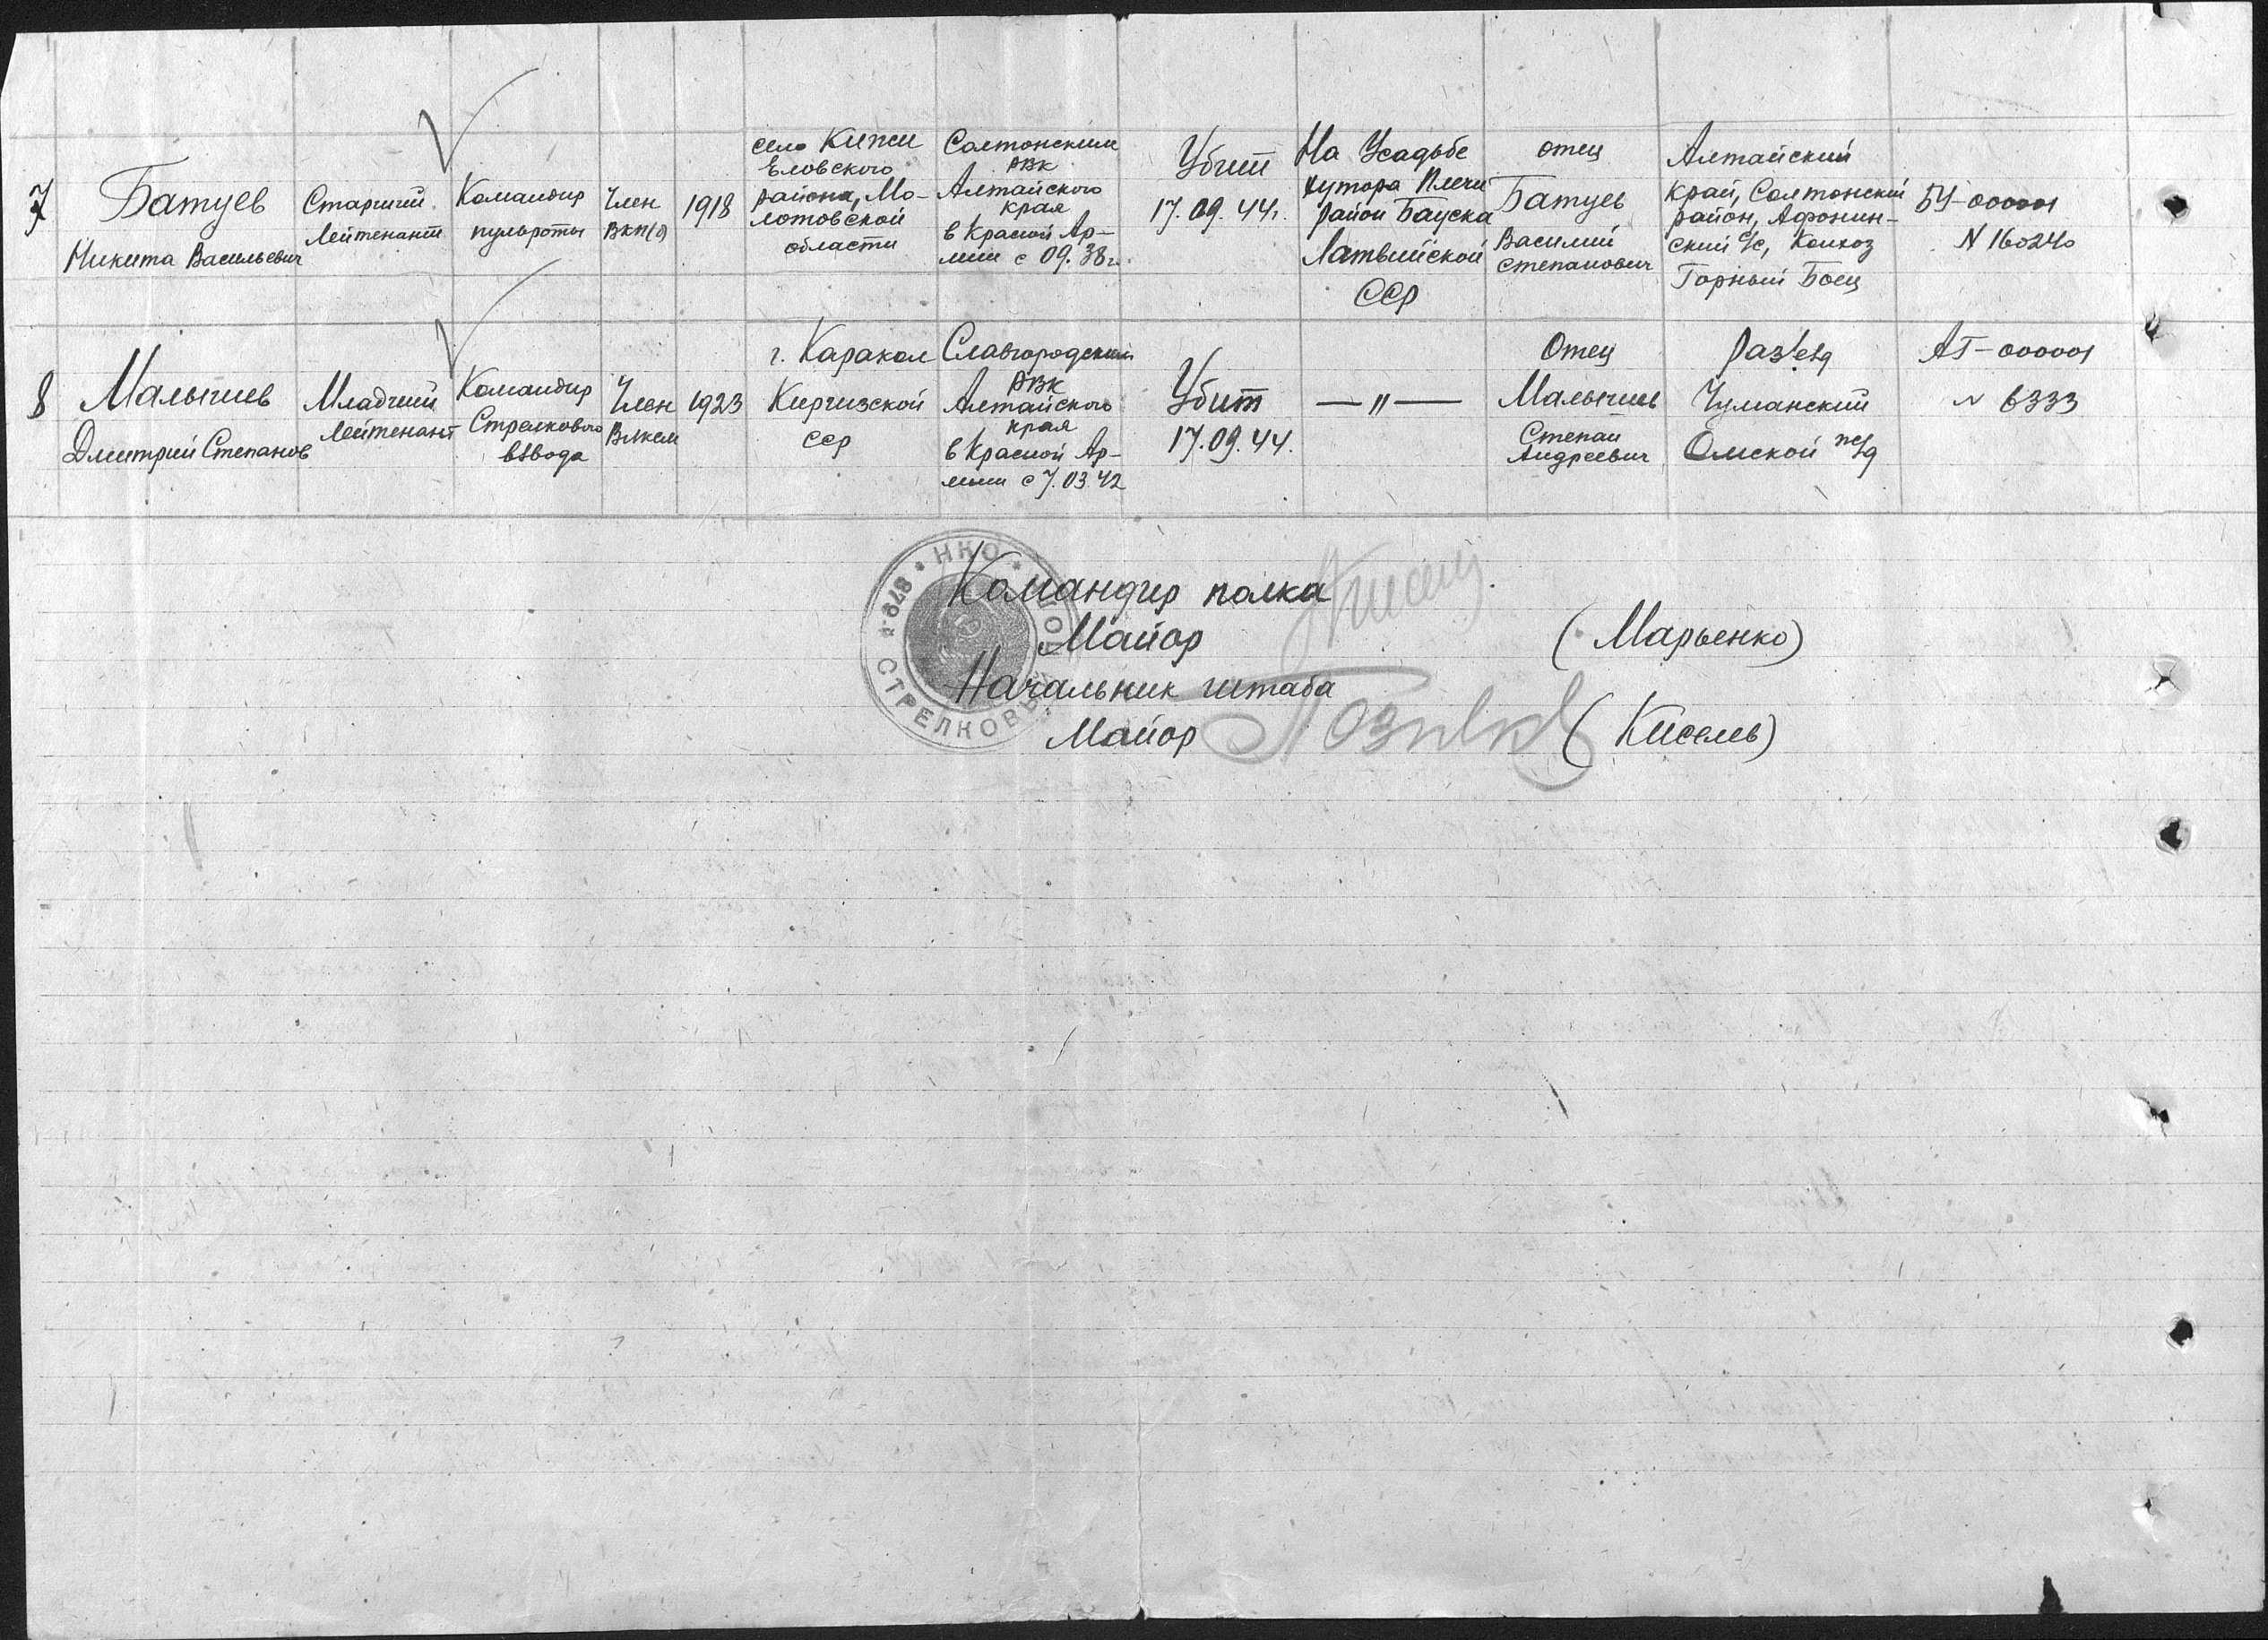 7
Батуев
Никита Васильевич
Старший
Лейтенант
Командир
пульроты
Член
ВКП(б)
1918
село Кижи
Еловского
района, Мо-
лотовской
области
Солтонским
РВК
Алтайского
края
в Красной Ар-
мии с 09.38г.
Убит
17.09.44г.
На Усадьбе
хутора Плечи
район Бауска
Латвийской
ССР
отец
Батуев
Василий
Степанович
Алтайский
край, Солтонский
район, Афонин-
ский с/с, Колхоз
Горный Боец
БУ-000001
N 160240
8
Малышев
Дмитрий Степанов
Младший
Лейтенант
Командир
Стрелкового
взвода
Член
Влксм
1923
г. Каракол
Киргизской
ССР
Славгородский
РВК
Алтайского
края
в Красной Ар-
мии с 7.03.42
Убит
17.09.44.
— " —
Отец
Малышев
Степан
Андреевич
Раз'езд
Чуманский
Омской ж/д
АГ-000001
N 6333
* НКО * 
* 878 *
СТРЕЛКОВЫЙ
Командир полка
Майор
(Марьенко)
Начальник штаба
Майор
(Кисель)